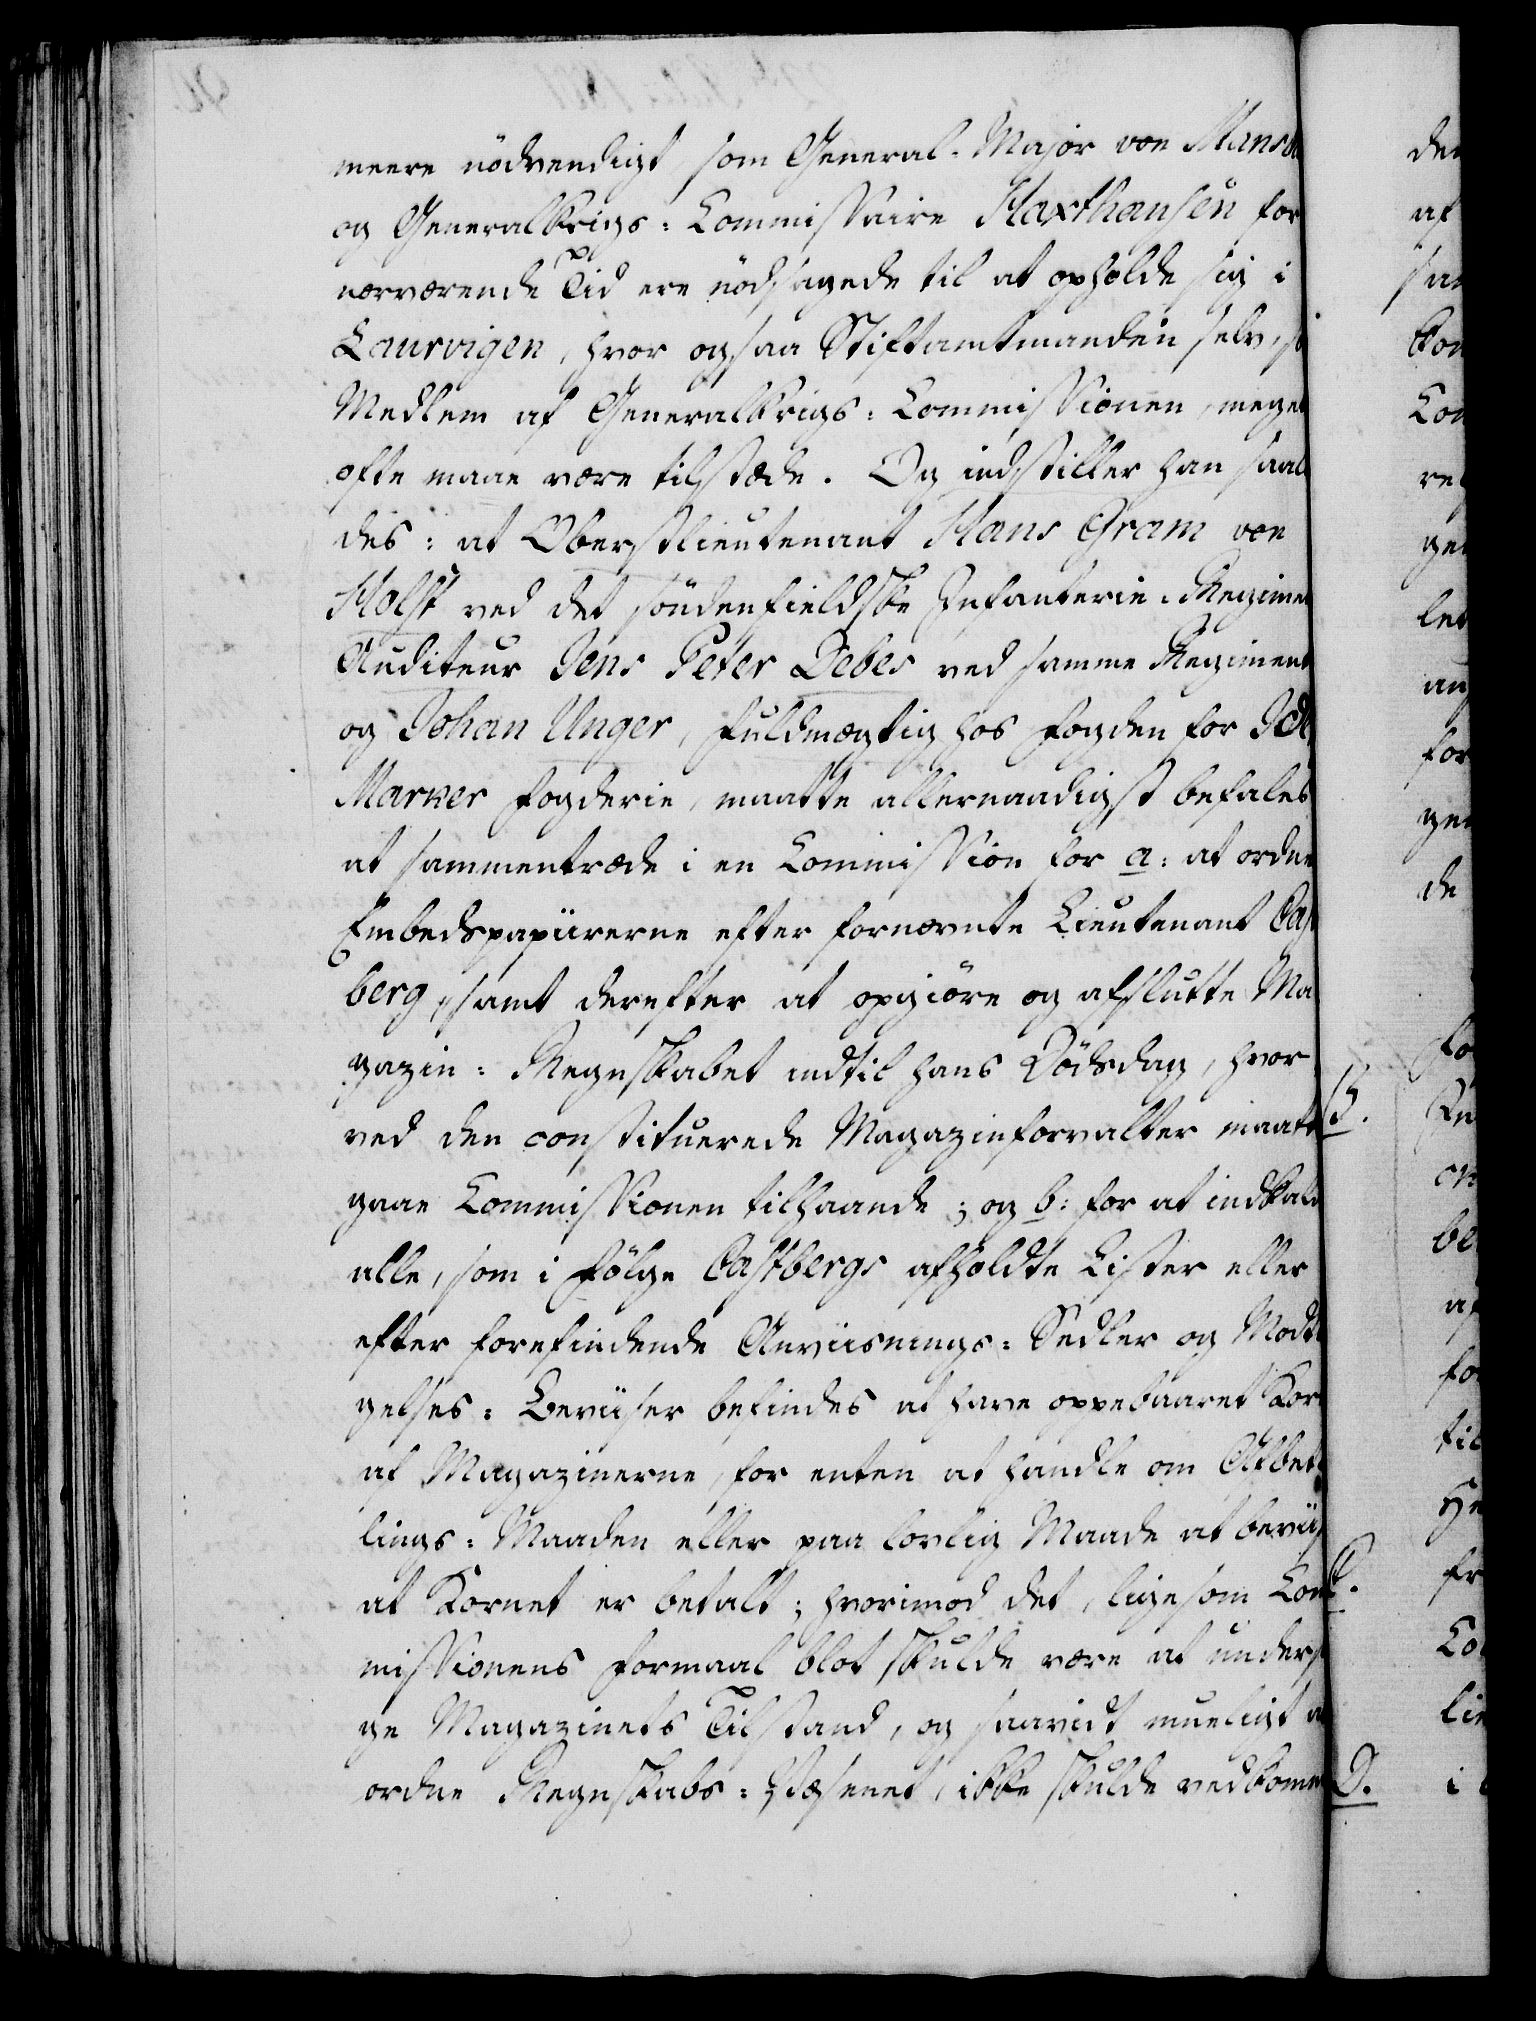 meere nödvendigt, som General-Major von Mansba
og Generalkrigs-Commissaire Haxthausen for
nærværende Tid ere nödsagede til at opholde sig i
Laurvigen, hvor ogsaa Stiftamtmanden selv, so
Medlem af Generalkrigs-Commissionen, meget
ofte maae være tilstæde. Og indstiller han saale
des: at Oberstlieutenant Hans Gram von
Holst ved det söndenfieldske Infanterie-Regimen
Auditeur Jens Peter Debes ved samme Regiment
og Johan Unger, Fuldmægtig hos Fogden for Idd
Marker Fogderie, maatte allernaadigst befales
at sammentræde i en Commission for a: at ordne
Embedspapiirerne efter fornævnte Lieutenant Cast
berg, samt derefter at opgiöre og afslutte Ma
gazin-Regnskabet indtil hans Dödsdag, hvor
ved den constituerede Magazinforvalter maatt
gaae Commissionen tilhaande; og b: for at indkald
alle, som i Fölge Castbergs afholdte Lister eller
efter forefindende Anviisnings-Sedler og Modta
gelses-Beviiser befindes at have oppebaaret Kor
af Magazinerne, for enten at handle om Afbeta
lings-Maaden eller paa lovlig Maade at beviis
at Kornet er betalt; hvorimod det, ligesom Com
missionens Formaal blot skulde være at undersö
ge Magazinets Tilstand, og saavidt mueligt a
ordne Regnskabs-Væsenet, ikke skulde vedkomme
den
af
B.
C.
D.